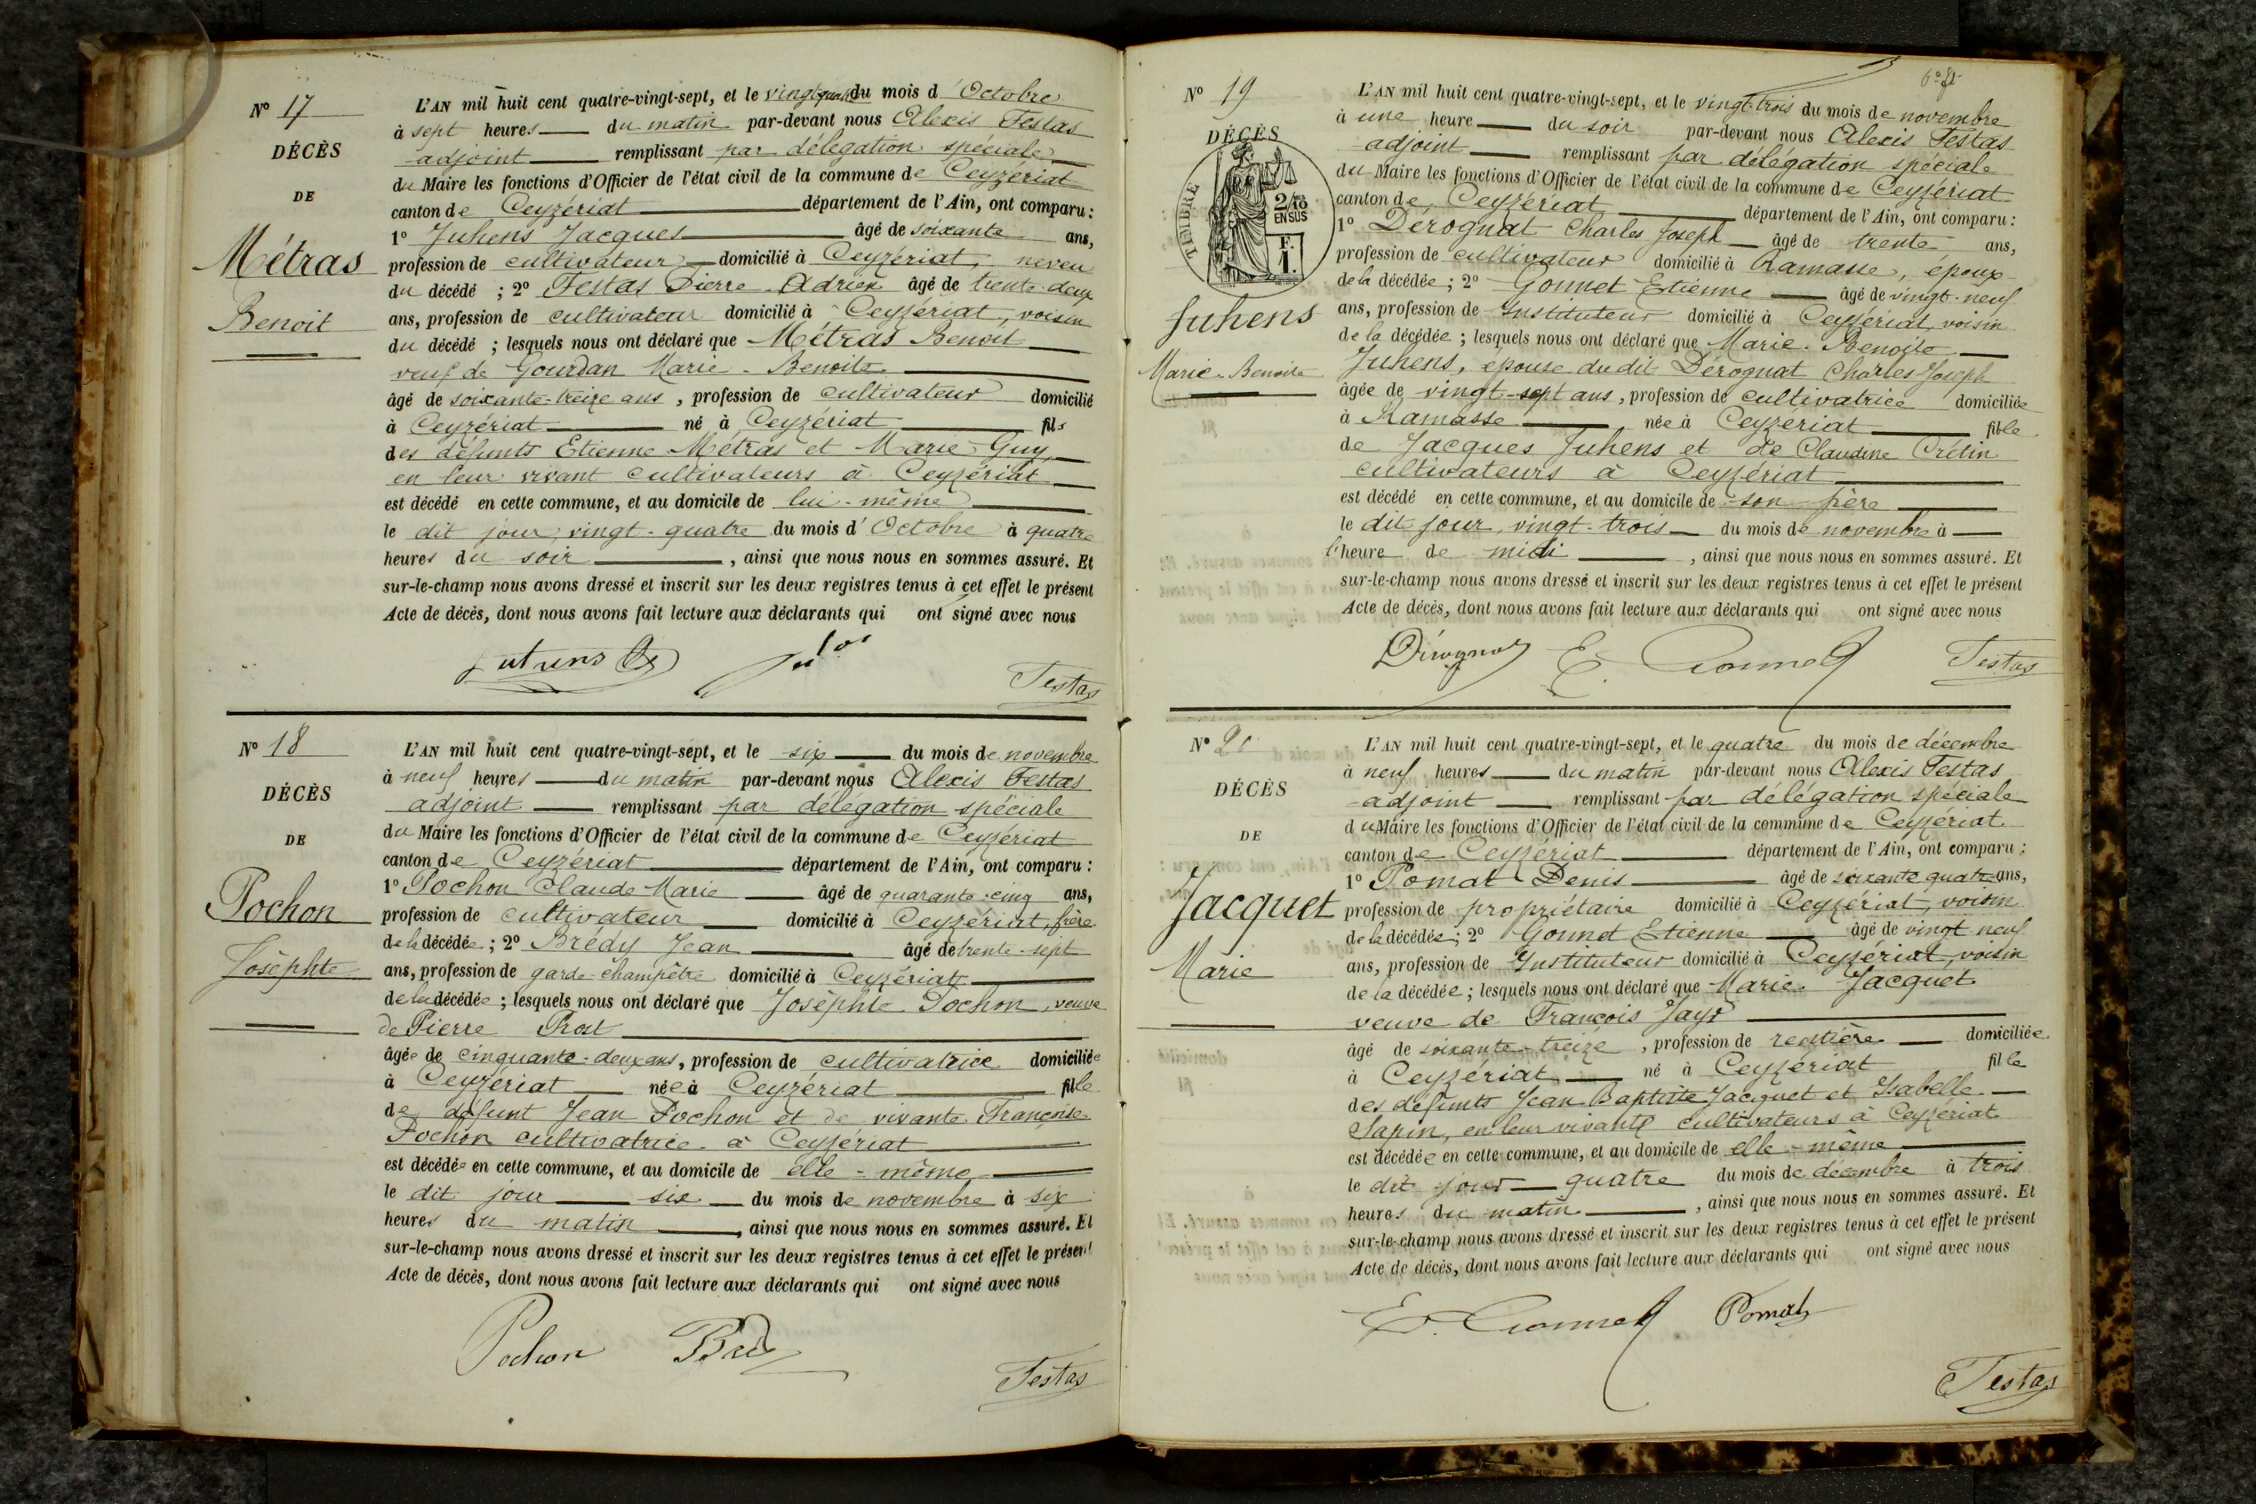 N° 17
DÉCÈS
DE
Métras
Benoit
L'AN mil huit cent quatre-vingt-sept, et le vingt quatre du mois d'Octobre
à sept heures du matin par-devant nous Alexis Festas
adjoint remplissant par délégation spéciale
du Maire les fonctions d'Officier de l'état civil de la commune de Ceyzériat
canton de Ceyzériat département de l'Ain, ont comparu :
1° Juhens Jacques âgé de soixante ans,
profession de cultivateur domicilié à Ceyzériat, neveu
du décédé ; 2° Festas Pierre Adrien âgé de trente-deux
ans, profession de cultivateur domicilié à Ceyzériat, voisin
du décédé ; lesquels nous ont déclaré que Métras Benoit
veuf de Gourdan Marie-Benoite
âgé de soixante-treize ans, profession de cultivateur domicilié
à Ceyzériat né à Ceyzériat fils
des défunts Etienne Métras et Marie Guy,
en leur vivant cultivateurs à Ceyzériat
est décédé en cette commune, et au domicile de lui-même
le dit jour vingt-quatre du mois d'Octobre à quatre
heures du soir, ainsi que nous nous en sommes assuré. Et
sur-le-champ nous avons dressé et inscrit sur les deux registres tenus à cet effet le présent
Acte de décès, dont nous avons fait lecture aux déclarants qui ont signé avec nous
Festas
N° 18
DÉCÈS
DE
Pochon
Josèphte
L'AN mil huit cent quatre-vingt-sept, et le six du mois de novembre
à neuf heures du matin par-devant nous Alexis Festas
adjoint remplissant par délégation spéciale
du Maire les fonctions d'Officier de l'état civil de la commune de Ceyzériat
canton de Ceyzériat département de l'Ain, ont comparu :
1° Pochon Claude Marie âgé de quarante-cinq ans,
profession de cultivateur domicilié à Ceyzériat, frère
de la décédée ; 2° Brédy Jean âgé de trente-sept
ans, profession de garde-champêtre domicilié à Ceyzériat
de la décédée ; lesquels nous ont déclaré que Josèphte Pochon, veuve
de Pierre Prat
âgée de cinquante-deux ans, profession de cultivatrice domiciliée
à Ceyzériat née à Ceyzériat fille
de défunt Jean Pochon et de vivante Françoise
Pochon cultivatrice à Ceyzériat
est décédée en cette commune, et au domicile de elle-même
le dit jour six du mois de novembre à six
heures du matin, ainsi que nous nous en sommes assuré. Et
sur-le-champ nous avons dressé et inscrit sur les deux registres tenus à cet effet le présent
Acte de décès, dont nous avons fait lecture aux déclarants qui ont signé avec nous
Pochon
Festas
N° 19
DÉCÈS
TIMBRE
2/10
EN SUS
F.
1.
Juhens
Marie-Benoite
L'AN mil huit cent quatre-vingt-sept, et le vingt-trois du mois de novembre
à une heure du soir par-devant nous Alexis Festas
adjoint remplissant par délégation spéciale
du Maire les fonctions d'Officier de l'état civil de la commune de Ceyzériat
canton de Ceyzériat département de l'Ain, ont comparu :
1° Dérognat Charles Joseph âgé de trente ans,
profession de cultivateur domicilié à Ramasse, époux
de la décédée ; 2° Gonnet Etienne âgé de vingt-neuf
ans, profession de Instituteur domicilié à Ceyzériat, voisin
de la décédée ; lesquels nous ont déclaré que Marie-Benoite
Juhens, épouse du dit Dérognat Charles Joseph
âgée de vingt-sept ans, profession de cultivatrice domiciliée
à Ramasse née à Ceyzériat fille
de Jacques Juhens et de Claudine Crétin
cultivateurs à Ceyzériat
est décédé en cette commune, et au domicile de son père
le dit jour, vingt-trois du mois de novembre à
l'heure de midi, ainsi que nous nous en sommes assuré. Et
sur-le-champ nous avons dressé et inscrit sur les deux registres tenus à cet effet le présent
Acte de décès, dont nous avons fait lecture aux déclarants qui ont signé avec nous
E. Gonnet Festas
N° 20
DÉCÈS
DE
Jacquet
Marie
L'AN mil huit cent quatre-vingt-sept, et le quatre du mois de décembre
à neuf heures du matin par-devant nous Alexis Festas
adjoint remplissant par délégation spéciale
du Maire les fonctions d'Officier de l'état civil de la commune de Ceyzériat
canton de Ceyzériat département de l'Ain, ont comparu :
1° Pomat Denis âgé de soixante quatre ans,
profession de propriétaire domicilié à Ceyzériat, voisin
de la décédée ; 2° Gonnet Etienne âgé de vingt neuf
ans, profession de Instituteur domicilié à Ceyzériat, voisin
de la décédée ; lesquels nous ont déclaré que Marie Jacquet
veuve de François Jayr
âgé de soixante-treize, profession de rentière domiciliée
à Ceyzériat né à Ceyzériat fille
des défunts Jean Baptiste Jacquet et Isabelle
Sapin, en leur vivant cultivateurs à Ceyzériat
est décédée en cette commune, et au domicile de elle-même
le dit jour quatre du mois de décembre à trois
heures du matin, ainsi que nous nous en sommes assuré. Et
sur-le-champ nous avons dressé et inscrit sur les deux registres tenus à cet effet le présent
Acte de décès, dont nous avons fait lecture aux déclarants qui ont signé avec nous
E. Gonnet Pomat
Festas